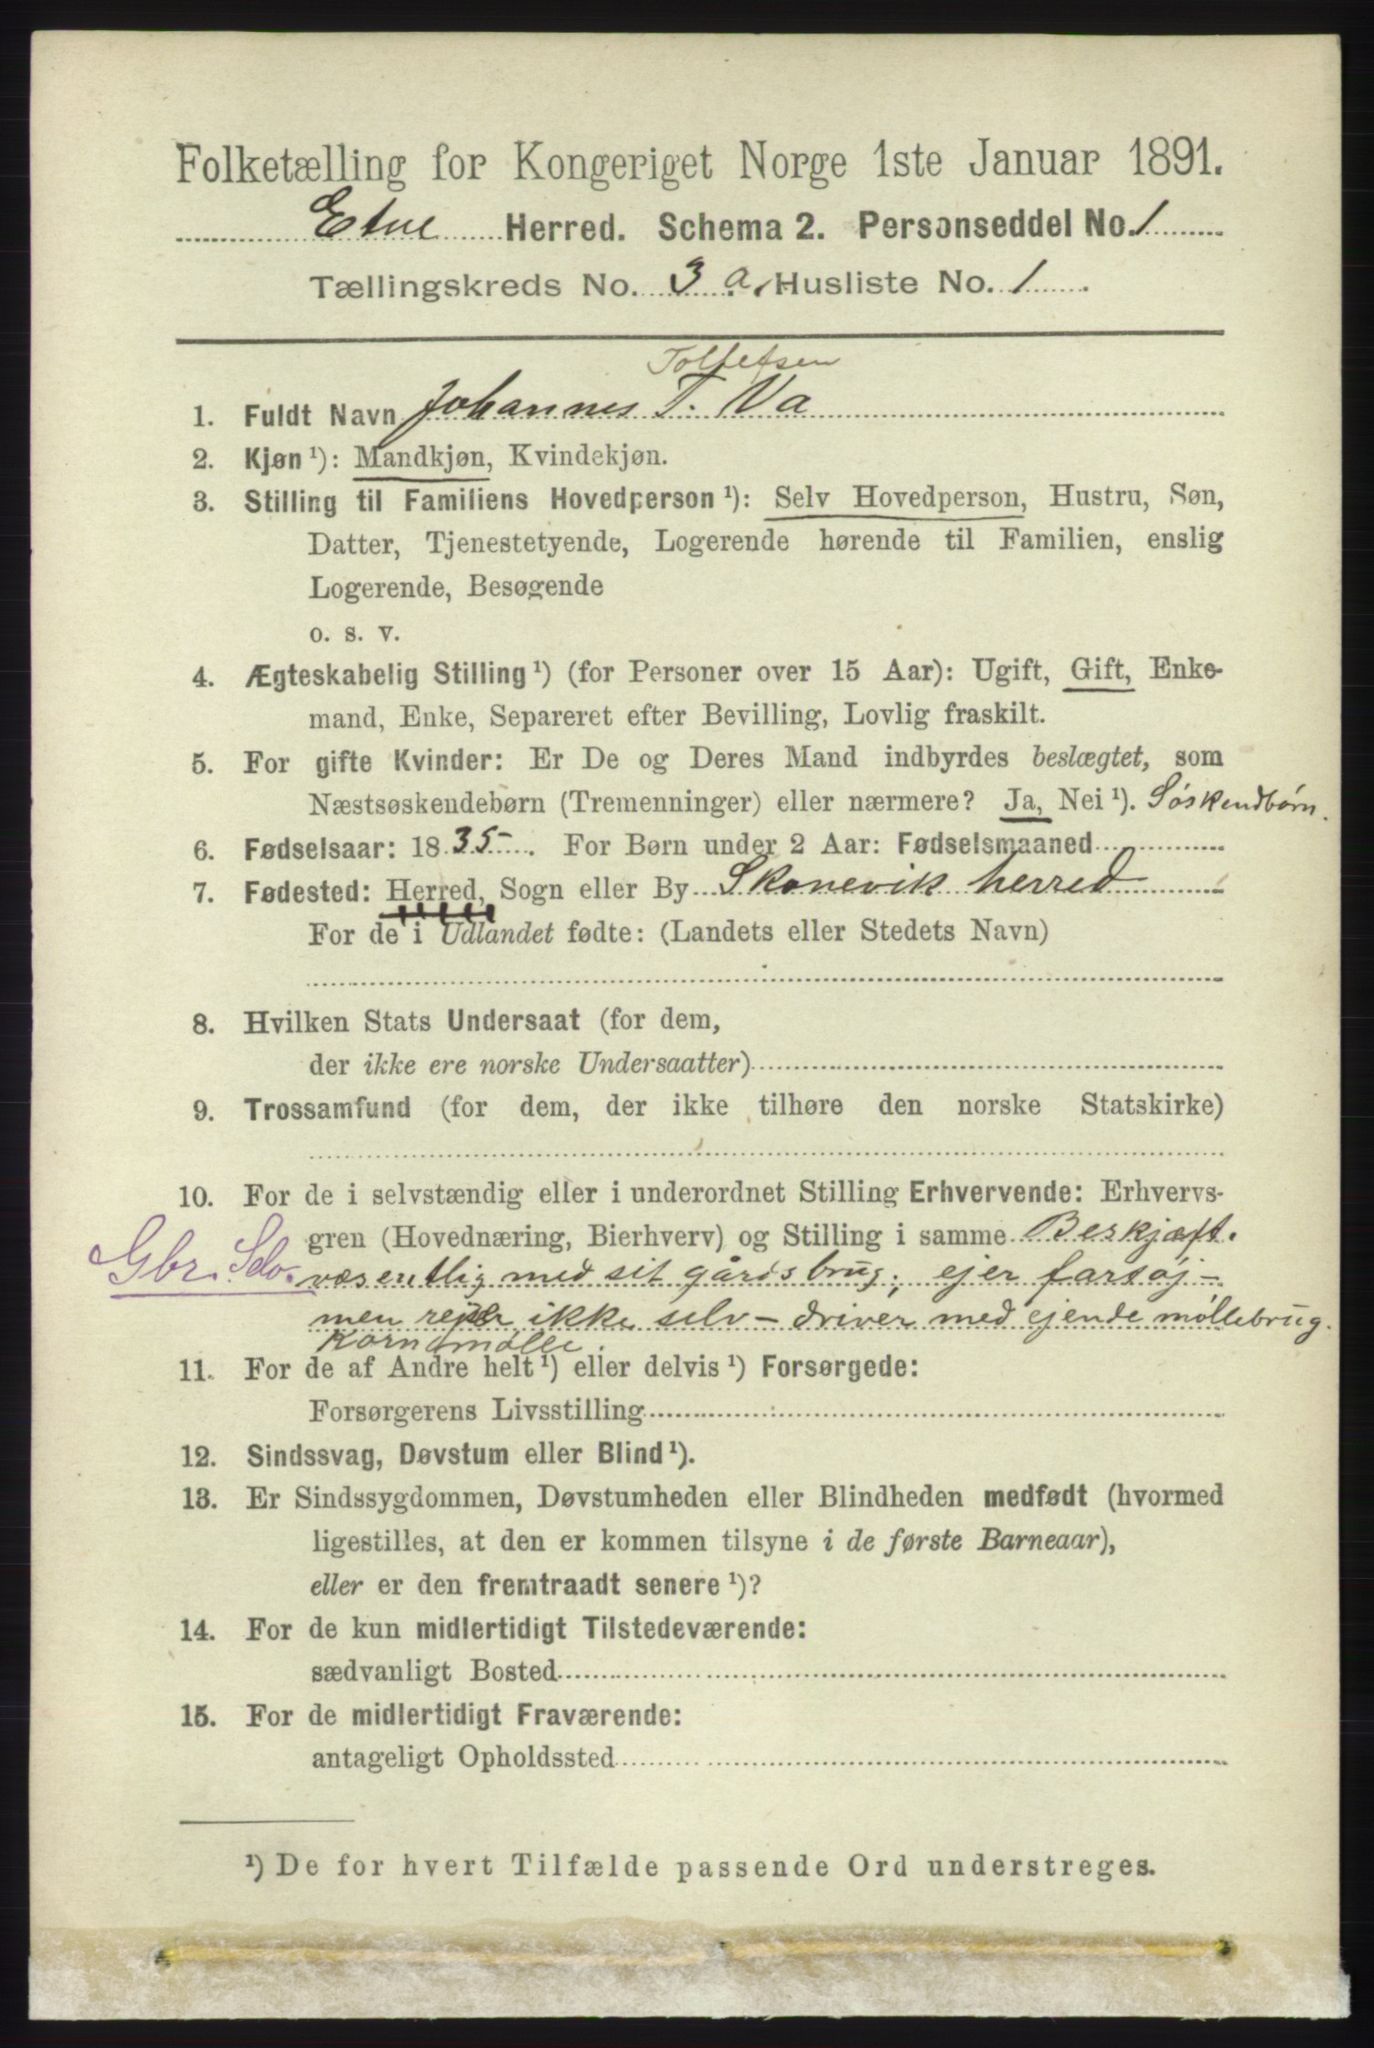 Folketælling for Kongeriget Norge 1ste Januar 1891.
Etne Herred. Schema 2. Personseddel No. 1
Tællingskreds No. 3 a. Husliste No. 1
Tollefsen
1. Fuldt Navn Johannes T. Va
2. Kjøn ¹): Mandkjøn, Kvindekjøn.
3. Stilling til Familiens Hovedperson ¹): Selv Hovedperson, Hustru, Søn,
Datter, Tjenestetyende, Logerende hørende til Familien, enslig
Logerende, Besøgende
o. s. v.
4. Ægteskabelig Stilling ¹) (for Personer over 15 Aar): Ugift, Gift, Enke-
mand, Enke, Separeret efter Bevilling, Lovlig fraskilt.
5. For gifte Kvinder: Er De og Deres Mand indbyrdes beslægtet, som
Næstsøskendebørn (Tremenninger) eller nærmere? Ja, Nei ¹). Søskendbørn.
6. Fødselsaar: 1835. For Børn under 2 Aar: Fødselsmaaned
7. Fødested: Herred, Sogn eller By Skonevik herred
For de i Udlandet fødte: (Landets eller Stedets Navn)
8. Hvilken Stats Undersaat (for dem,
der ikke ere norske Undersaatter)
9. Trossamfund (for dem, der ikke tilhøre den norske Statskirke)
10. For de i selvstændig eller i underordnet Stilling Erhvervende: Erhvervs-
gren (Hovednæring, Bierhverv) og Stilling i samme Beskjæft.
Gbr. Selv. væsentlig med sit gårdsbrug; ejer farsøj -
men rejser ikke selv - driver med ejende møllebrug.
Kornmølle.
11. For de af Andre helt ¹) eller delvis ¹) Forsørgede:
Forsørgerens Livsstilling
12. Sindssvag, Døvstum eller Blind ¹).
13. Er Sindssygdommen, Døvstumheden eller Blindheden medfødt (hvormed
ligestilles, at den er kommen tilsyne i de første Barneaar),
eller er den fremtraadt senere ¹)?
14. For de kun midlertidigt Tilstedeværende:
sædvanligt Bosted
15. For de midlertidigt Fraværende:
antageligt Opholdssted
¹) De for hvert Tilfælde passende Ord understreges.